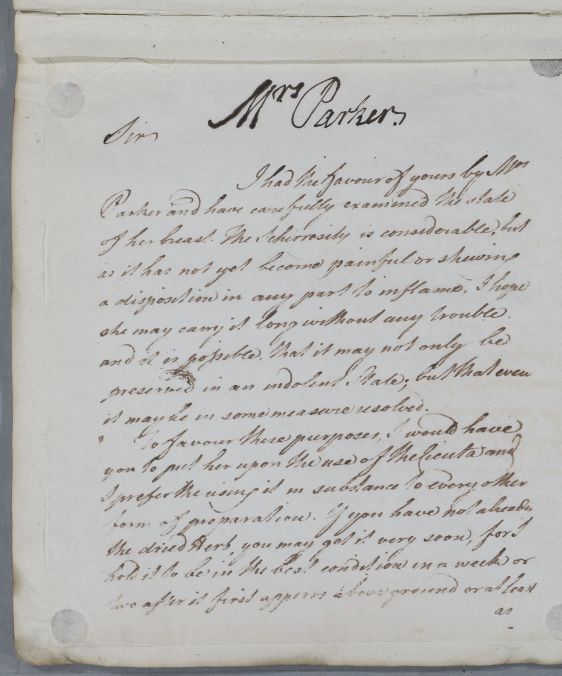 Mrs Parker
Sir
I had the favour of yours by Mrs
Parker and have carefully examined the state
of her breast. The Schirrosity is considerable, but
as it has not yet become painful or shewing
a disposition in any part to inflame, I hope
she may carry it long without any trouble.
and it is possible, that it may not only be
preserved in an indolent State; but that even
it may be in some measure resolved.
To favour these purposes, I would have
you to put her upon the use of the Cicuta and
I prefer the using it in substance to every other
form of preparation. If you have not already
the dried Herb, you may get it very soon, for I
hold it to be in the best condition in a week or
two after it first appears above ground or at least
as